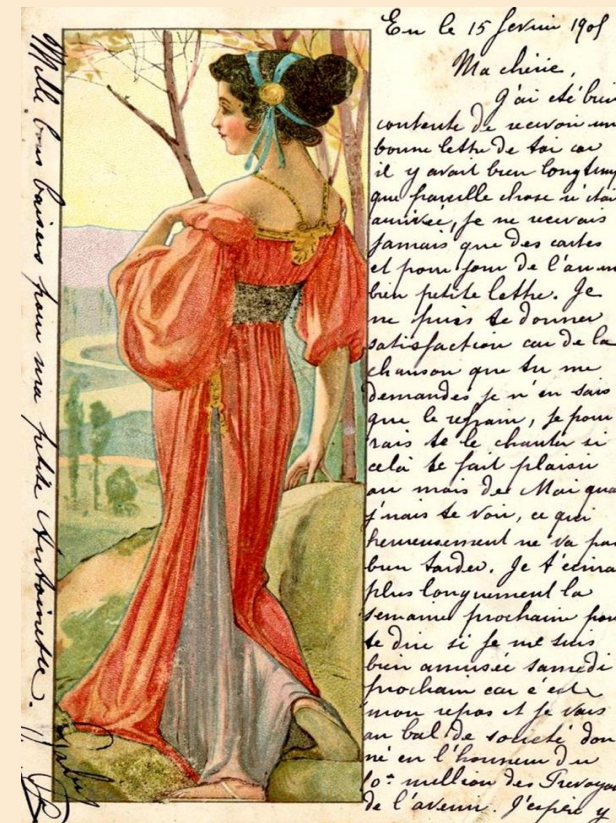 Eu le 15 fevrier 1905
Ma chérie,
J'ai été bien
contente de recevoir une
bonne lettre de toi car
il y avait bien longtemps
que pareille chose n'était
arrivée, je ne recevais
jamais que des cartes
et pour jour de l'an une
bien petite lettre. Je
ne puis te donner
satisfaction car de la
chanson que tu me
demandes je n'en sais
que le refrain, je pour
rais te le chanter si
celà te fait plaisir
au mois de Mai quand
j'irais te voir, ce qui
heureusement ne va pas
bien tarder. Je t'écrirai
plus longuement la
semaine prochaine pour
te dire si je me suis
bien amusée samedi
prochain car c'est
mon repos et je vais
au bal de société don
né en l'honneur du
10e million des Prevoyants
de l'avenir. J'espère y
Mille bons baisers pour ma petite Antoinette.